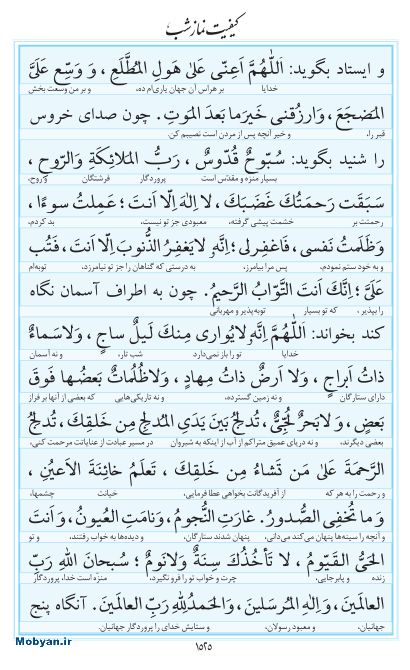 کیفیت نماز شب
و ایستاد بگوید: اَللّٰهُمَّ اَعِنّی عَلیٰ هَولِ المُطَّلَعِ، وَ وَسِّع عَلَیَّ
خدایا بر هراس آن جهان یاری‌ام ده، و بر من وسعت بخش
المَضجَعَ، وَارزُقنی خَیرَما بَعدَ المَوتِ. چون صدای خروس
قبر را، و خیر آنچه پس از مردن است نصیبم کن.
را شنید بگوید: سُبّوحٌ قُدّوسٌ، رَبُّ المَلائِکَةِ وَالرّوحِ،
بسیار منزه و مقدّس است پروردگار فرشتگان و روح،
سَبَقَت رَحمَتُکَ غَضَبَکَ، لا اِلٰهَ اِلّا اَنتَ؛ عَمِلتُ سوءًا،
رحمتت بر خشمت پیشی گرفته، معبودی جز تو نیست، بد کردم،
وَظَلَمتُ نَفسی، فَاغفِرلی؛ اِنَّهٗ لایَغفِرُ الذُّنوبَ اِلّا اَنتَ، فَتُب
و به خود ستم نمودم، پس مرا بیامرز، به درستی که گناهان را جز تو نیامرزد، توبه‌ام
عَلَیَّ؛ اِنَّکَ اَنتَ التَّوّابُ الرَّحیمُ. چون به اطراف آسمان نگاه
را بپذیر، که تو بسیار توبه‌پذیر و مهربانی
کند بخواند: اَللّٰهُمَّ اِنَّهٗ لایُواری مِنکَ لَیلٌ ساجٍ، وَلاسَماءٌ
خدایا تو را باز نمی‌دارد شب تار، و نه آسمان
ذاتُ اَبراجٍ، وَلا اَرضٌ ذاتُ مِهادٍ، وَلاظُلُماتٌ بَعضُها فَوقَ
دارای ستارگان و نه زمین گسترده، و نه تاریکی‌هایی که بعضی از آنها بر فراز
بَعضٍ، وَلابَحرٌ لُجِّیٌّ، تُدلِجُ بَینَ یَدَیِ المُدلِجِ مِن خَلقِکَ، تُدلِجُ
بعضی دیگرند، و نه دریای عمیق متراکم از آب از اینکه به شبروان در مسیر عبادت از عنایاتت مرحمت کنی،
الرَّحمَةَ عَلیٰ مَن تَشاءُ مِن خَلقِکَ، تَعلَمُ خائِنَةَ الاَعیُنِ،
و رحمت را به هر که از آفریدگانت بخواهی عطا فرمایی، خیانت چشمها،
وَما تُخفِی الصُّدورُ. غارَتِ النُّجومُ، وَنامَتِ العُیونُ، وَاَنتَ
و آنچه را سینه‌ها پنهان می‌کند می‌دانی، پنهان شدند ستارگان، و دیده‌ها به خواب رفتند، و تو
الحَیُّ القَیّومُ، لا تَأخُذُکَ سِنَةٌ وَلانَومٌ؛ سُبحانَ اللهِ رَبِّ
زنده و پابرجایی، چرت و خواب تو را فرو نگیرد، منزه است خدا، پروردگار
العالَمینَ، وَاِلٰهِ المُرسَلینَ، وَالحَمدُلِلّٰهِ رَبِّ العالَمینَ. آنگاه پنج
جهانیان، و معبود رسولان، و ستایش خدای را پروردگار جهانیان.
۱۵۲۵
Mobyan.ir